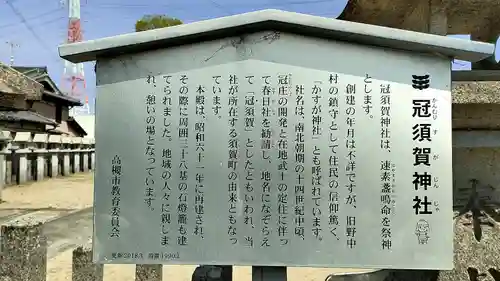 冠須賀神社
かんむりすがじんじゃ
冠須賀神社は、速素盞鳴命を祭神
とします。
創建の年月は不詳ですが、旧野中
村の氏神として住民の信仰篤く、
「かすが神社」とも呼ばれています。
社名は、南北朝期の十四世紀中頃、
冠庄の開発と在地武士の定住に伴っ
て春日社を勧請し、地名になぞらえ
て「冠須賀」としたともいわれ、当
社が所在する須賀町の由来ともなっ
ています。
本殿は、昭和六十一年に再建され、
その際に周囲三十八基の石燈籠も建
てられました。地域の人々に親しま
れ、憩いの場となっています。
高槻市教育委員会
更新2018.3 設置1990.3